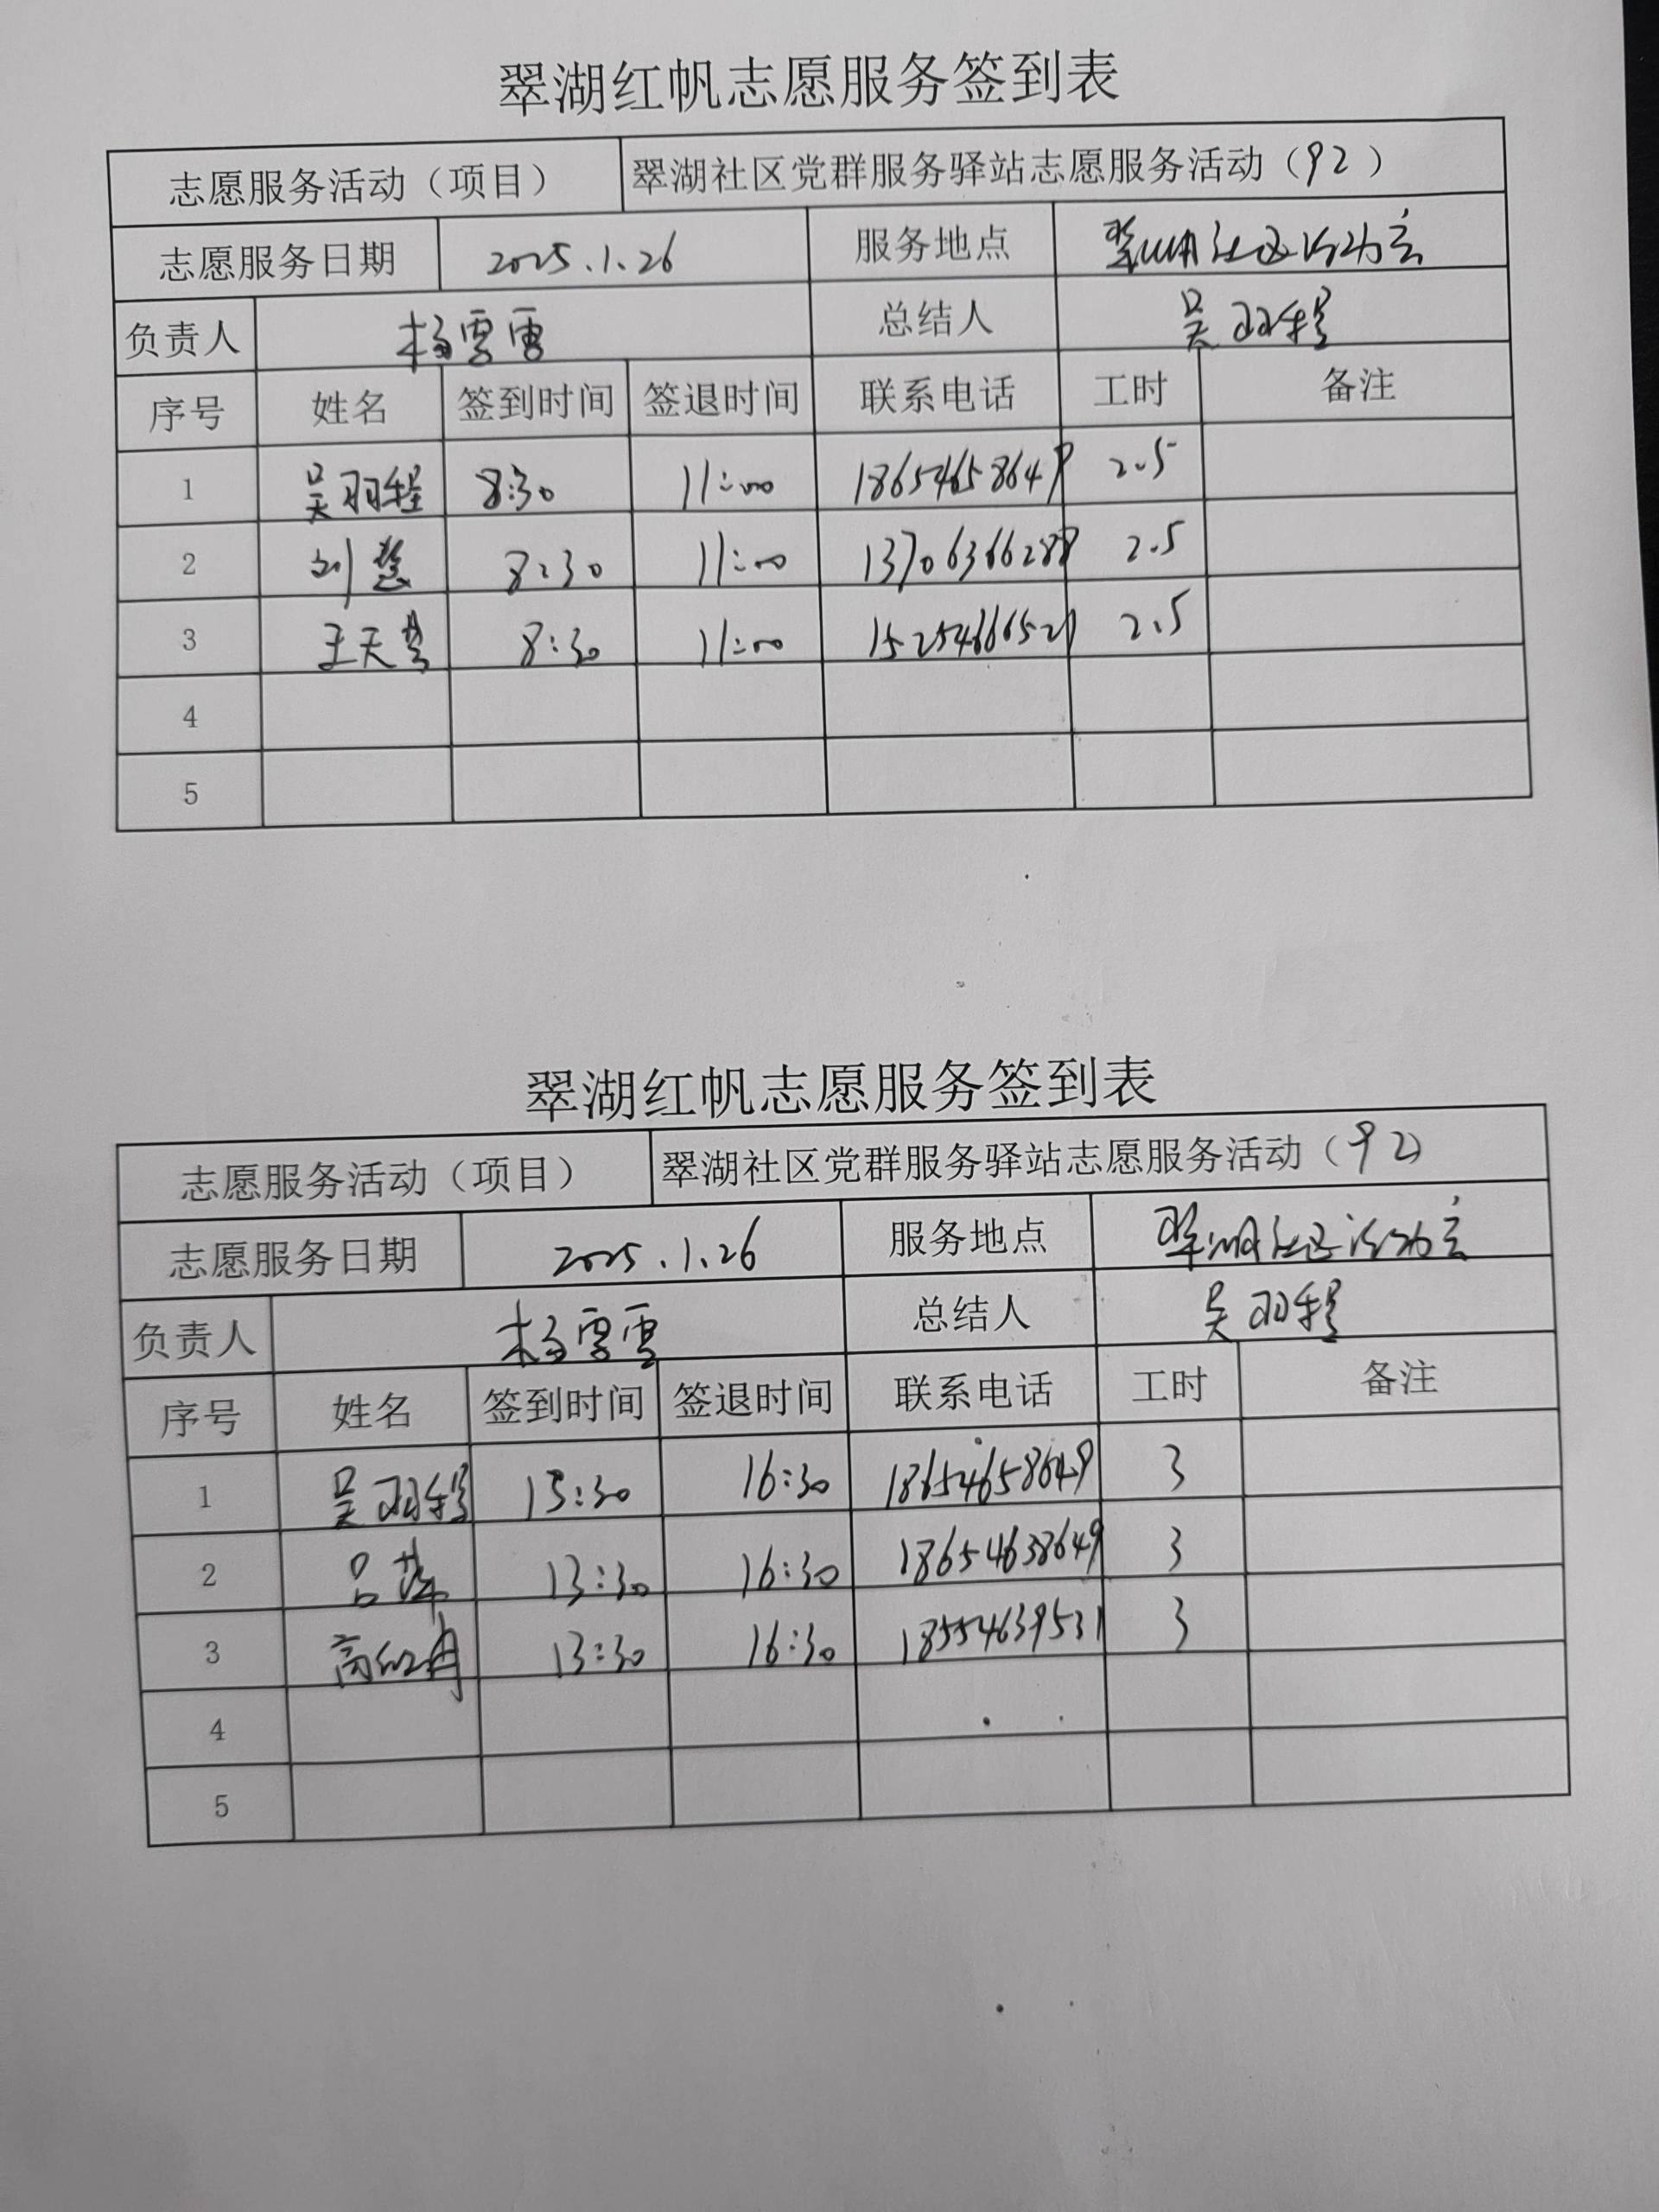 翠湖红帆志愿服务签到表
志愿服务活动（项目） 翠湖社区党群服务驿站志愿服务活动（92）
志愿服务日期 2025.1.26 服务地点 翠湖社区活动室
负责人 杨雪雪 总结人 吴羽程
序号 姓名 签到时间 签退时间 联系电话 工时 备注
1 吴羽程 8:30 11:00 18654658649 2.5
2 刘慧 8:30 11:00 13706366288 2.5
3 王天 8:30 11:00 15254666521 2.5
4
5
翠湖红帆志愿服务签到表
志愿服务活动（项目） 翠湖社区党群服务驿站志愿服务活动（92）
志愿服务日期 2025.1.26 服务地点 翠湖社区活动室
负责人 杨雪雪 总结人 吴羽程
序号 姓名 签到时间 签退时间 联系电话 工时 备注
1 吴羽程 13:30 16:30 18654658649 3
2 吕萍 13:30 16:30 18654638649 3
3 高红冉 13:30 16:30 18554639531 3
4
5